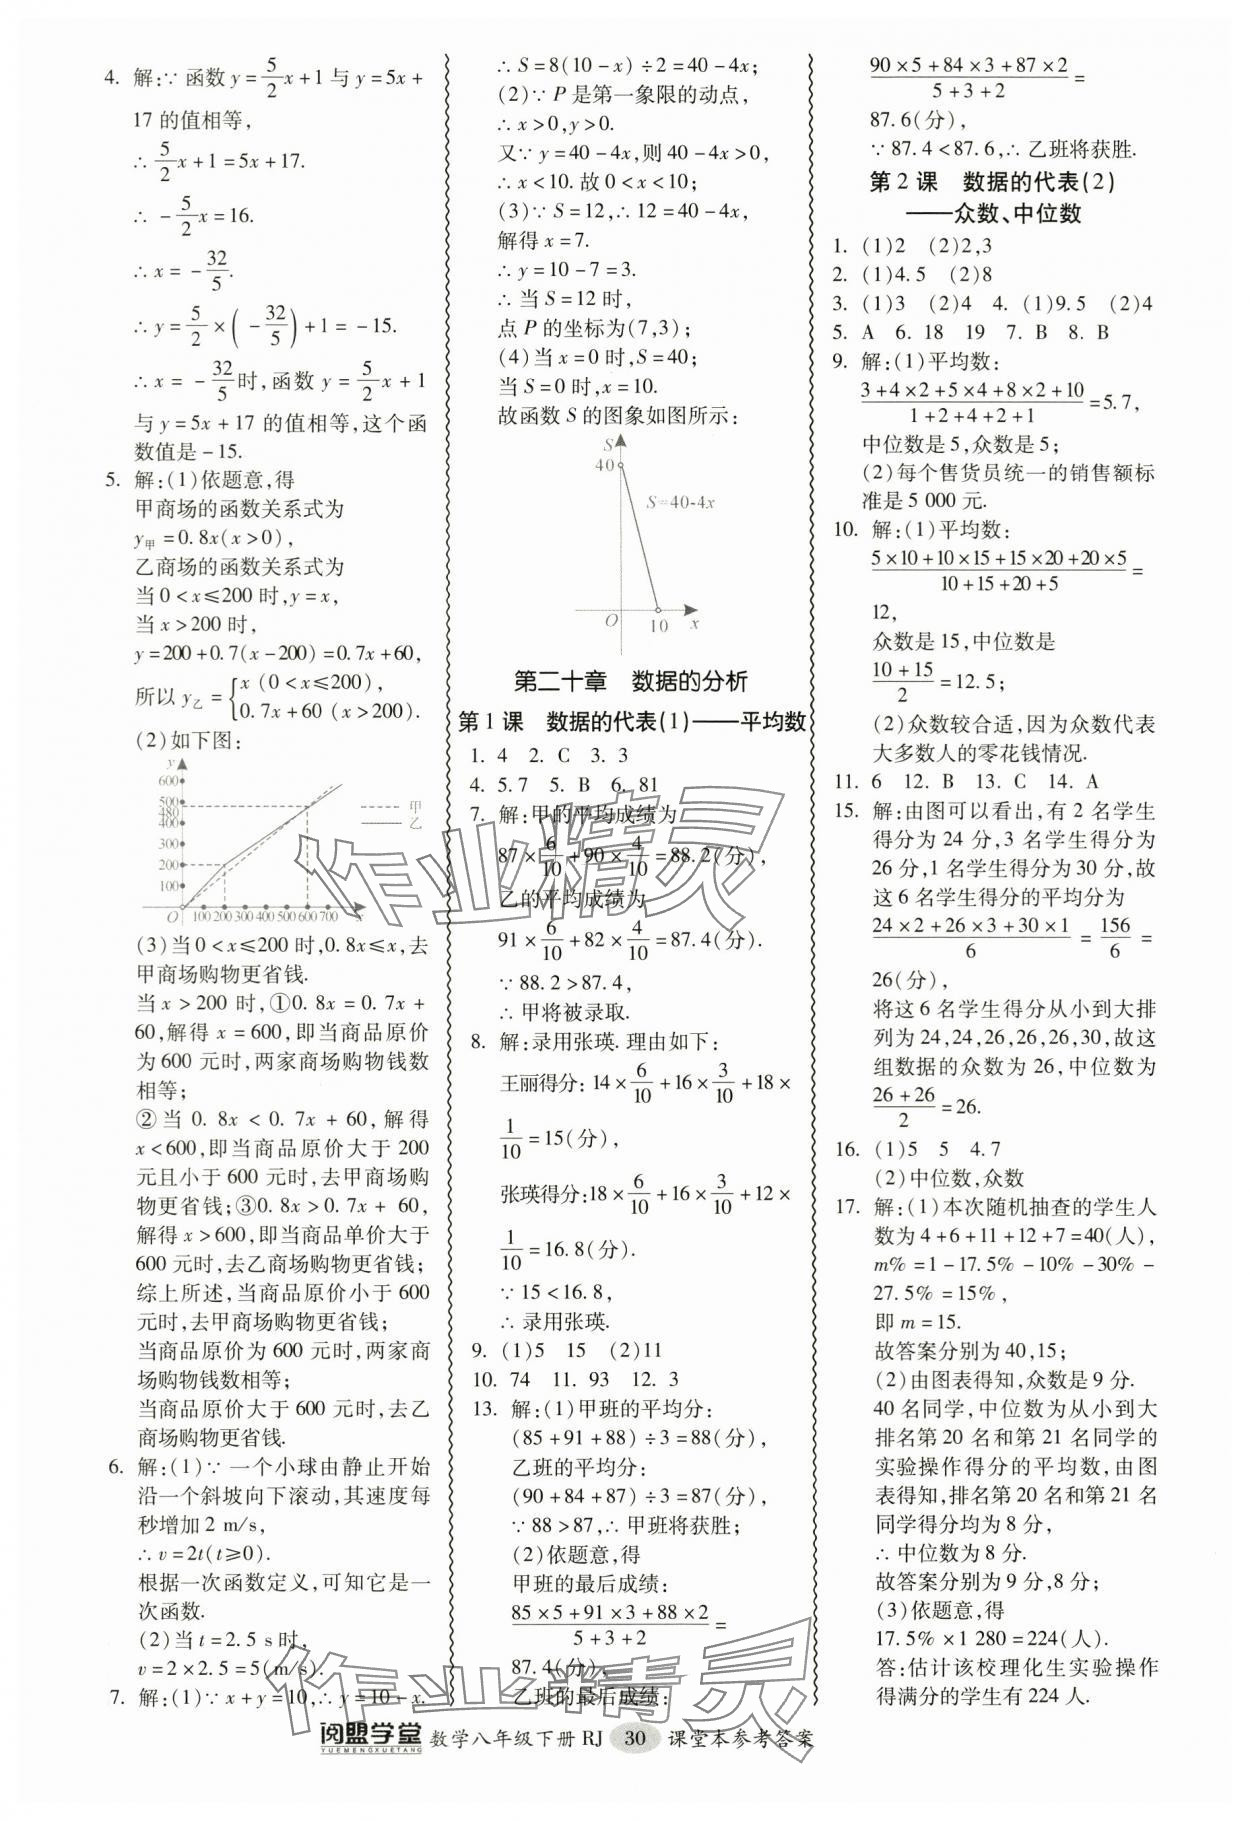 4. 解:∵ 函数 y=5/2x+1 与 y=5x+
17 的值相等,
∴ 5/2x+1=5x+17.
∴ -5/2x=16.
∴ x=-32/5.
∴ y=5/2×(-32/5)+1=-15.
∴ x=-32/5时,函数 y=5/2x+1
与 y=5x+17 的值相等,这个函
数值是-15.
5. 解:(1)依题意,得
甲商场的函数关系式为
y甲=0.8x(x>0),
乙商场的函数关系式为
当 0<x≤200 时,y=x,
当 x>200 时,
y=200+0.7(x-200)=0.7x+60,
所以 y乙={x (0<x≤200),
0.7x+60 (x>200).
(2)如下图:
y
600
500
480
400
300
200
100
O 100 200 300 400 500 600 700 x
甲
乙
(3)当 0<x≤200 时,0.8x≤x,去
甲商场购物更省钱.
当 x>200 时,①0.8x=0.7x+
60,解得 x=600,即当商品原价
为 600 元时,两家商场购物钱数
相等;
②当 0.8x<0.7x+60,解得
x<600,即当商品原价大于 200
元且小于 600 元时,去甲商场购
物更省钱;③0.8x>0.7x+60,
解得 x>600,即当商品单价大于
600 元时,去乙商场购物更省钱;
综上所述,当商品原价小于 600
元时,去甲商场购物更省钱;
当商品原价为 600 元时,两家商
场购物钱数相等;
当商品原价大于 600 元时,去乙
商场购物更省钱.
6. 解:(1)∵ 一个小球由静止开始
沿一个斜坡向下滚动,其速度每
秒增加 2 m/s,
∴ v=2t(t≥0).
根据一次函数定义,可知它是一
次函数.
(2)当 t=2.5 s 时,
v=2×2.5=5(m/s).
7. 解:(1)∵ x+y=10,∴ y=10-x.
∴ S=8(10-x)÷2=40-4x;
(2)∵ P 是第一象限的动点,
∴ x>0,y>0.
又∵ y=40-4x,则 40-4x>0,
∴ x<10.故 0<x<10;
(3)∵ S=12,∴ 12=40-4x,
解得 x=7.
∴ y=10-7=3.
∴ 当 S=12 时,
点 P 的坐标为(7,3);
(4)当 x=0 时,S=40;
当 S=0 时,x=10.
故函数 S 的图象如图所示:
S
40
S=40-4x
O 10 x
第二十章 数据的分析
第 1 课 数据的代表(1)——平均数
1. 4 2. C 3. 3
4. 5.7 5. B 6. 81
7. 解:甲的平均成绩为
87×6/10+90×4/10=88.2(分),
乙的平均成绩为
91×6/10+82×4/10=87.4(分).
∵ 88.2>87.4,
∴ 甲将被录取.
8. 解:录用张瑛. 理由如下:
王丽得分:14×6/10+16×3/10+18×
1/10=15(分),
张瑛得分:18×6/10+16×3/10+12×
1/10=16.8(分).
∵ 15<16.8,
∴ 录用张瑛.
9. (1)5 15 (2)11
10. 74 11. 93 12. 3
13. 解:(1)甲班的平均分:
(85+91+88)÷3=88(分),
乙班的平均分:
(90+84+87)÷3=87(分),
∵ 88>87,∴ 甲班将获胜;
(2)依题意,得
甲班的最后成绩:
(85×5+91×3+88×2)/(5+3+2)=
87.4(分),
乙班的最后成绩:
(90×5+84×3+87×2)/(5+3+2)=
87.6(分),
∵ 87.4<87.6,∴ 乙班将获胜.
第 2 课 数据的代表(2)
——众数、中位数
1. (1)2 (2)2,3
2. (1)4.5 (2)8
3. (1)3 (2)4 4. (1)9.5 (2)4
5. A 6. 18 19 7. B 8. B
9. 解:(1)平均数:
(3+4×2+5×4+8×2+10)/(1+2+4+2+1)=5.7,
中位数是 5,众数是 5;
(2)每个售货员统一的销售额标
准是 5 000 元.
10. 解:(1)平均数:
(5×10+10×15+15×20+20×5)/(10+15+20+5)=
12,
众数是 15,中位数是
(10+15)/2=12.5;
(2)众数较合适,因为众数代表
大多数人的零花钱情况.
11. 6 12. B 13. C 14. A
15. 解:由图可以看出,有 2 名学生
得分为 24 分,3 名学生得分为
26 分,1 名学生得分为 30 分,故
这 6 名学生得分的平均分为
(24×2+26×3+30×1)/6=156/6=
26(分),
将这 6 名学生得分从小到大排
列为 24,24,26,26,26,30,故这
组数据的众数为 26,中位数为
(26+26)/2=26.
16. (1)5 5 4.7
(2)中位数,众数
17. 解:(1)本次随机抽查的学生人
数为 4+6+11+12+7=40(人),
m%=1-17.5%-10%-30%-
27.5%=15%,
即 m=15.
故答案分别为 40,15;
(2)由图表得知,众数是 9 分.
40 名同学,中位数为从小到大
排名第 20 名和第 21 名同学的
实验操作得分的平均数,由图
表得知,排名第 20 名和第 21 名
同学得分均为 8 分,
∴ 中位数为 8 分.
故答案分别为 9 分,8 分;
(3)依题意,得
17.5%×1 280=224(人).
答:估计该校理化生实验操作
得满分的学生有 224 人.
作业精灵
作业精灵
阅盟学堂 YUEMENGXUETANG 数学八年级下册 RJ 30 课堂本参考答案